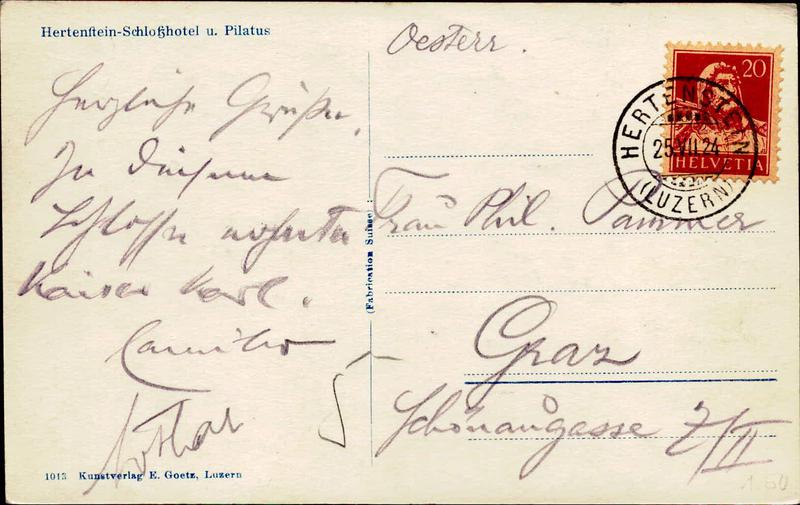 Hertenstein-Schloßhotel u. Pilatus
Herzliche Grüße.
In diesem
Schlosse wohnte
Kaiser Karl.
(Fabrication Suisse)
Oesterr.
20
HELVETIA
HERTENSTEIN
25.VII.24
(LUZERN)
Frau Phil. Pammer
Graz
Schönaugasse 7/II
1013 Kunstverlag E. Goetz, Luzern
1.50